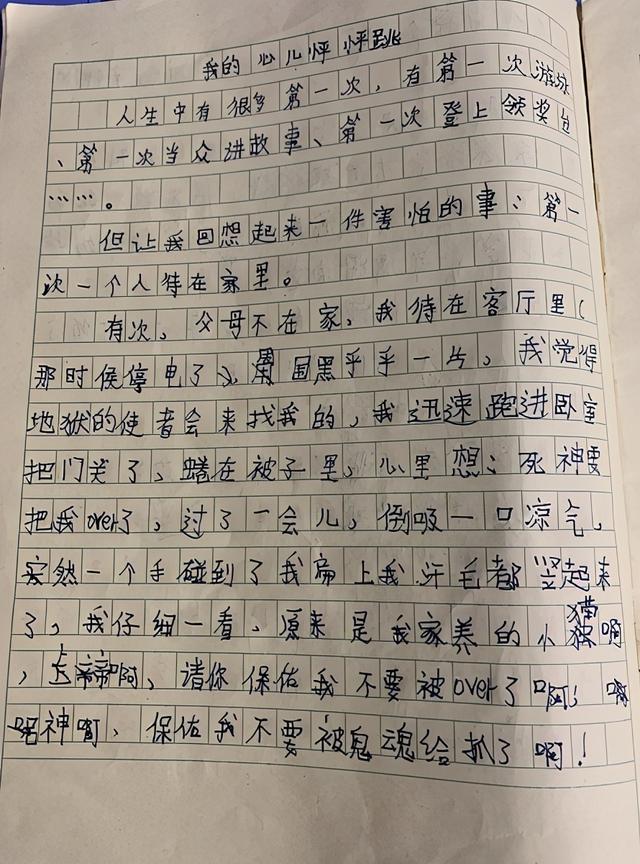 我的心儿怦怦跳
人生中有很多第一次,有第一次游泳
、第一次当众讲故事、第一次登上领奖台
……。
但让我回想起来一件害怕的事:第一
次一个人待在家里。
有次,父母不在家,我待在客厅里(
那时候停电了),周围黑乎乎一片,我觉得
地狱的使者会来找我的,我迅速跑进卧室
把门关了,蜷在被子里,心里想:死神要
把我over了,过了一会儿,倒吸一口凉气,
突然一个手碰到了我肩上我汗毛都竖起来
了,我仔细一看,原来是我家养的小猫啊
,上帝啊,请你保佑我不要被over了啊,
神啊,保佑我不要被鬼魂给抓了啊!